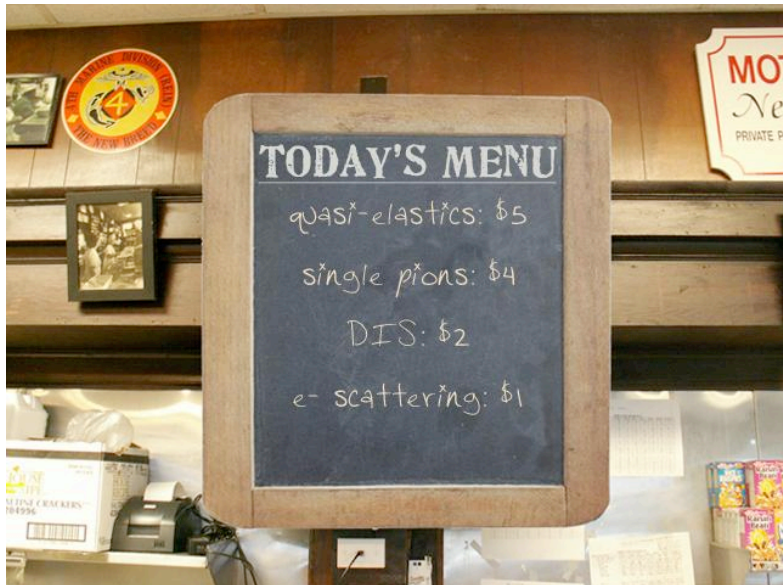 4TH MARINE DIVISION (REIN)
THE NEW BREED
MOT
Ne
PRIVATE P
TODAY'S MENU
quasi-elastics: $5
single pions: $4
DIS: $2
e- scattering: $1
SALTINE CRACKERS
204996
Raisin
Bran